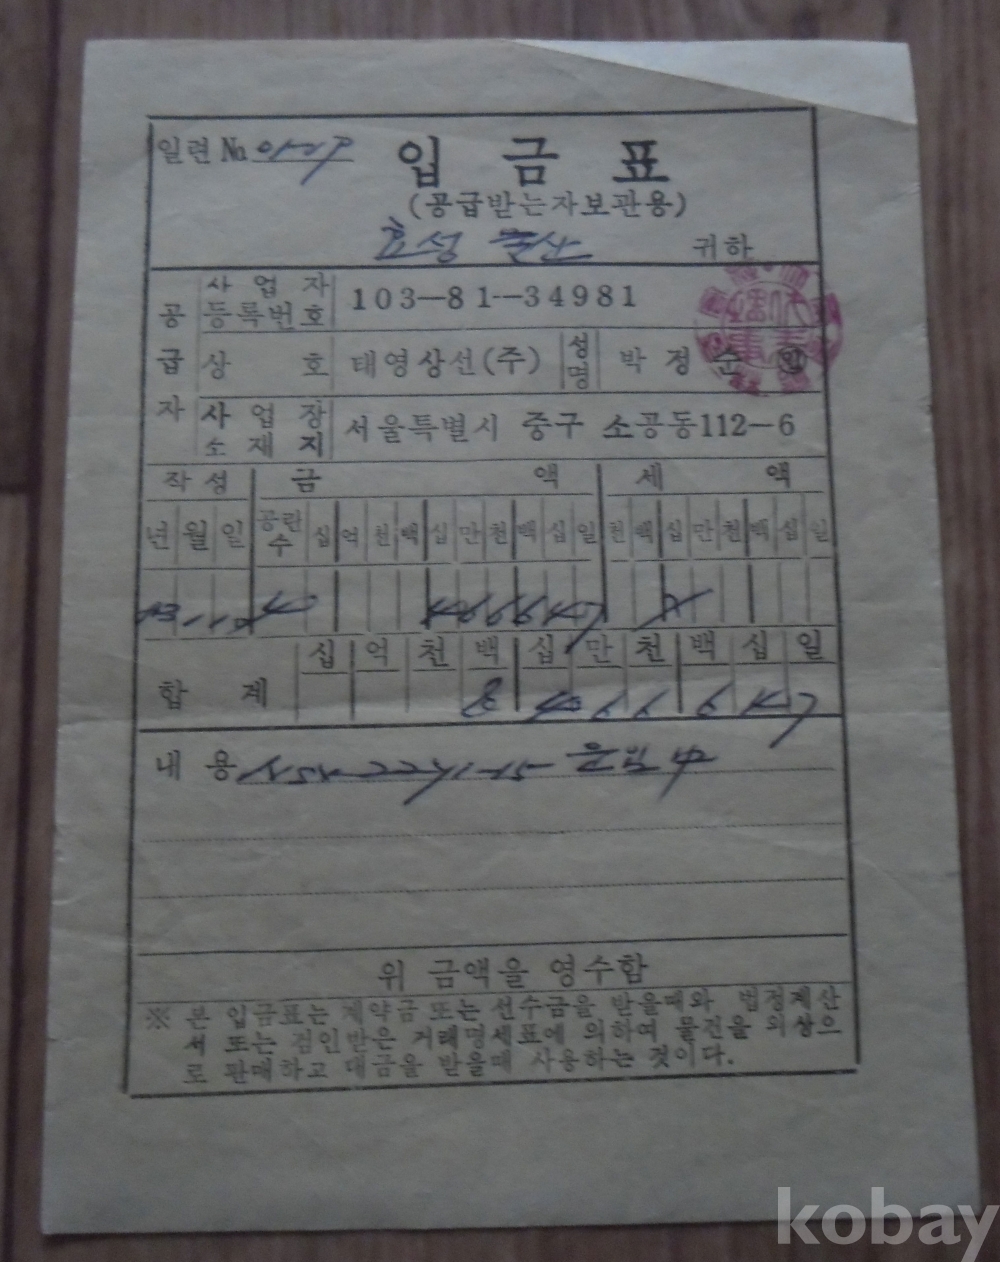 일련 No.
입 금 표
(공급받는자보관용)
효성 물산 귀하
공급자
사업자등록번호 103-81-34981
상호 태영상선(주) 성명 박정순 ㊞
사업장소재지 서울특별시 중구 소공동112-6
작성 금 액 세 액
년 월 일 공란수 십 억 천 백 십 만 천 백 십 일 천 백 십 만 천 백 십 일
십 억 천 백 십 만 천 백 십 일
합 계
내 용
위 금액을 영수함
※ 본 입금표는 계약금 또는 선수금을 받을때와 법정계산
서 또는 검인받은 거래명세표에 의하여 물건을 외상으
로 판매하고 대금을 받을때 사용하는 것이다.
kobay